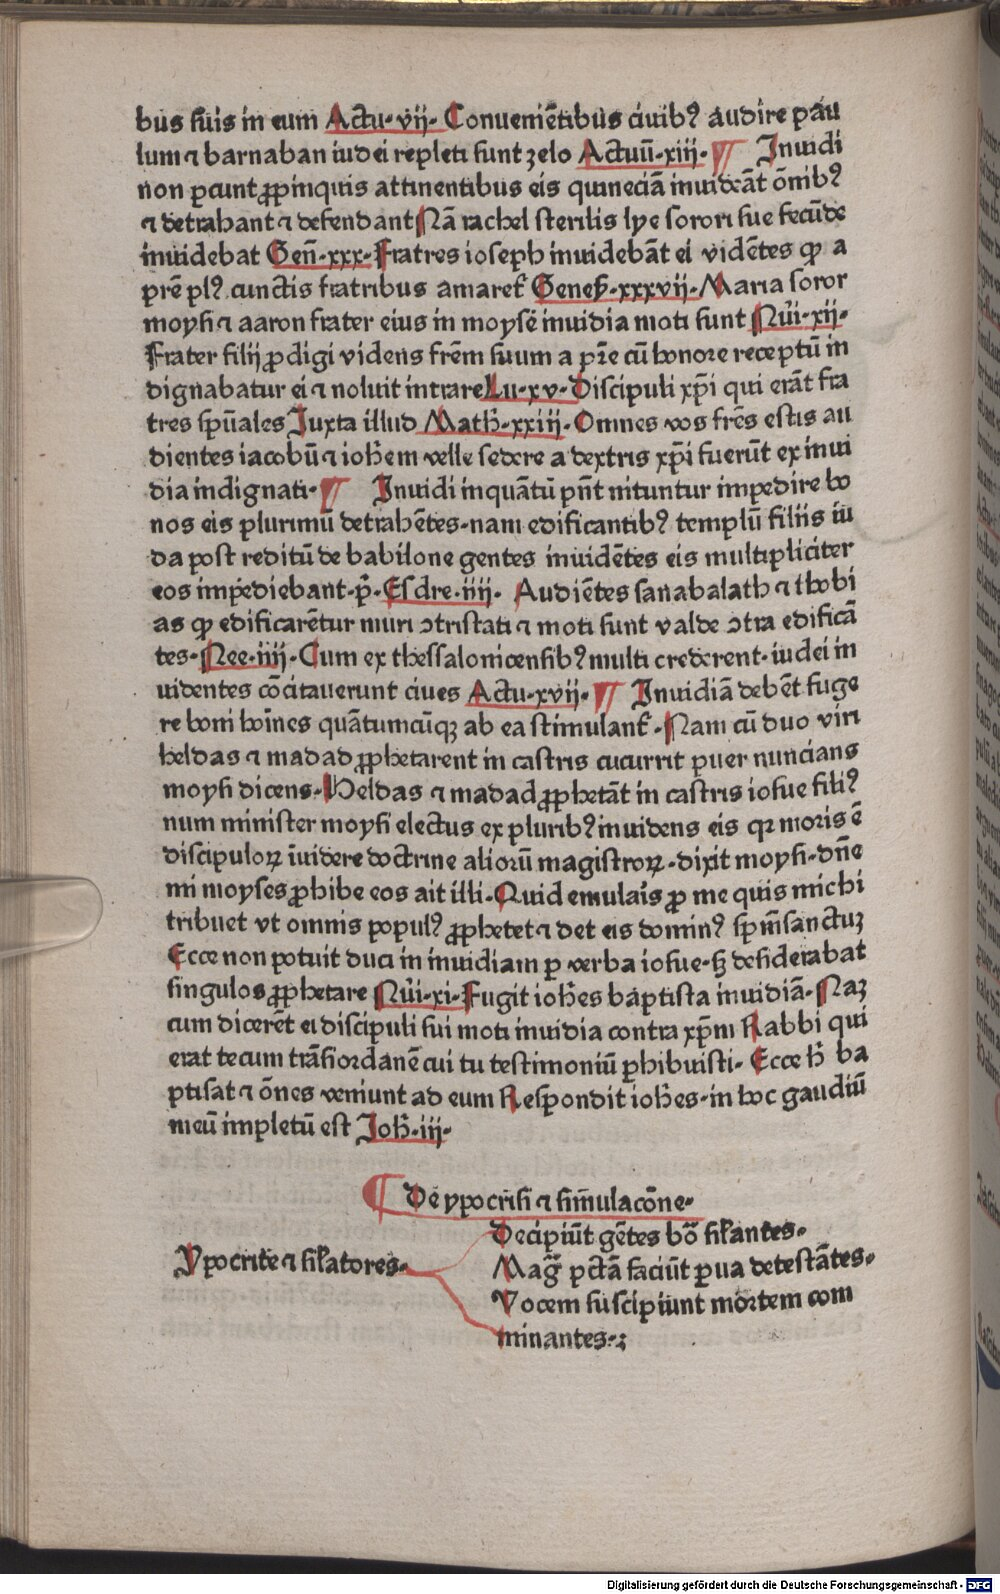 bus suis in eum Actu·vij· Conueniẽtibus ciuibꝰ audire pau
lum ⁊ barnaban iudei repleti sunt zelo Actuũ·xiij· ¶ Inuidi
non ꝑcunt ꝓpinquis attinentibus eis quineciã inuideãt õnibꝰ
⁊ detrahant ⁊ defendant Nã rachel sterilis lye sorori sue fecũde
inuidebat Geñ·xxx· Fratres ioseph inuidebãt ei vidẽtes ꝙ a
prẽ plꝰ cunctis fratribus amaret̃ Geneß·xxxvij· Maria soror
moysi ⁊ aaron frater eius in moysẽ inuidia moti sunt Nũi·xij·
Frater filij ꝓdigi videns frẽm suum a pr̃e cũ honore receptũ in
dignabatur ei ⁊ noluit intrare Lu·xv· Discipuli xp̃i qui erãt fra
tres sp̃uales Iuxta illud Math̃·xxiij· Omnes vos frẽs estis au
dientes iacobũ ⁊ ioh̃em velle sedere a dextris xp̃i fuerũt ex inui
dia indignati· ¶ Inuidi inquãtũ pñt nituntur impedire bo
nos eis plurimũ detrahẽtes·nam edificantibꝰ templũ filiis iu
da post reditũ de babilone gentes inuidẽtes eis multipliciter
eos impediebant·p̃·Esdre·iiij· Audiẽtes sanabalath ⁊ thobi
as ꝙ edificarẽtur muri ↄtristati ⁊ moti sunt valde ↄtra edificã
tes·Nee·iiij· Cum ex thessalonicensibꝰ multi crederent·iudei in
uidentes cõcitauerunt ciues Actu·xvij· ¶ Inuidiã debẽt fuge
re boni hoĩnes quãtumcũqꝫ ab ea stimulant̃·Nam cũ duo viri
heldas ⁊ madad ꝓphetarent in castris cucurrit puer nuncians
moysi dicens·Heldas ⁊ madad ꝓphetãt in castris iosue filiꝰ
num minister moysi electus ex pluribꝰ inuidens eis qꝛ moris ẽ
discipuloꝝ ĩuidere doctrine aliorũ magistroꝝ·dixit moysi·dñe
mi moyses ꝓhibe eos ait illi·Quid emularis ꝓ me quis michi
tribuet vt omnis populꝰ ꝓphetet ⁊ det eis dominꝰ sp̃m sanctuꝫ
Ecce non potuit duci in inuidiam ꝑ verba iosue·sꝫ desiderabat
singulos ꝓphetare Nũi·xi·Fugit ioh̃es baptista inuidiã·Naꝫ
cum dicerẽt ei discipuli sui moti inuidia contra xp̃m Rabbi qui
erat tecum trãsiordanẽ cui tu testimoniũ phibuisti· Ecce h̃ ba
ptisat ⁊ õnes veniunt ad eum Respondit ioh̃es·in hoc gaudiũ
meũ impletũ est Ioh̃·iij·
¶ De ypocrisi ⁊ sim̃ulacõne·
Decipiũt gẽtes bõ sil̃antes·
Ypocrite ⁊ sil̃atores·
Mag̃ pctã faciũt ꝑua detestãtes·
Vocem suscipiunt mortem com
minantes·:
Digitalisierung gefördert durch die Deutsche Forschungsgemeinschaft - DFG